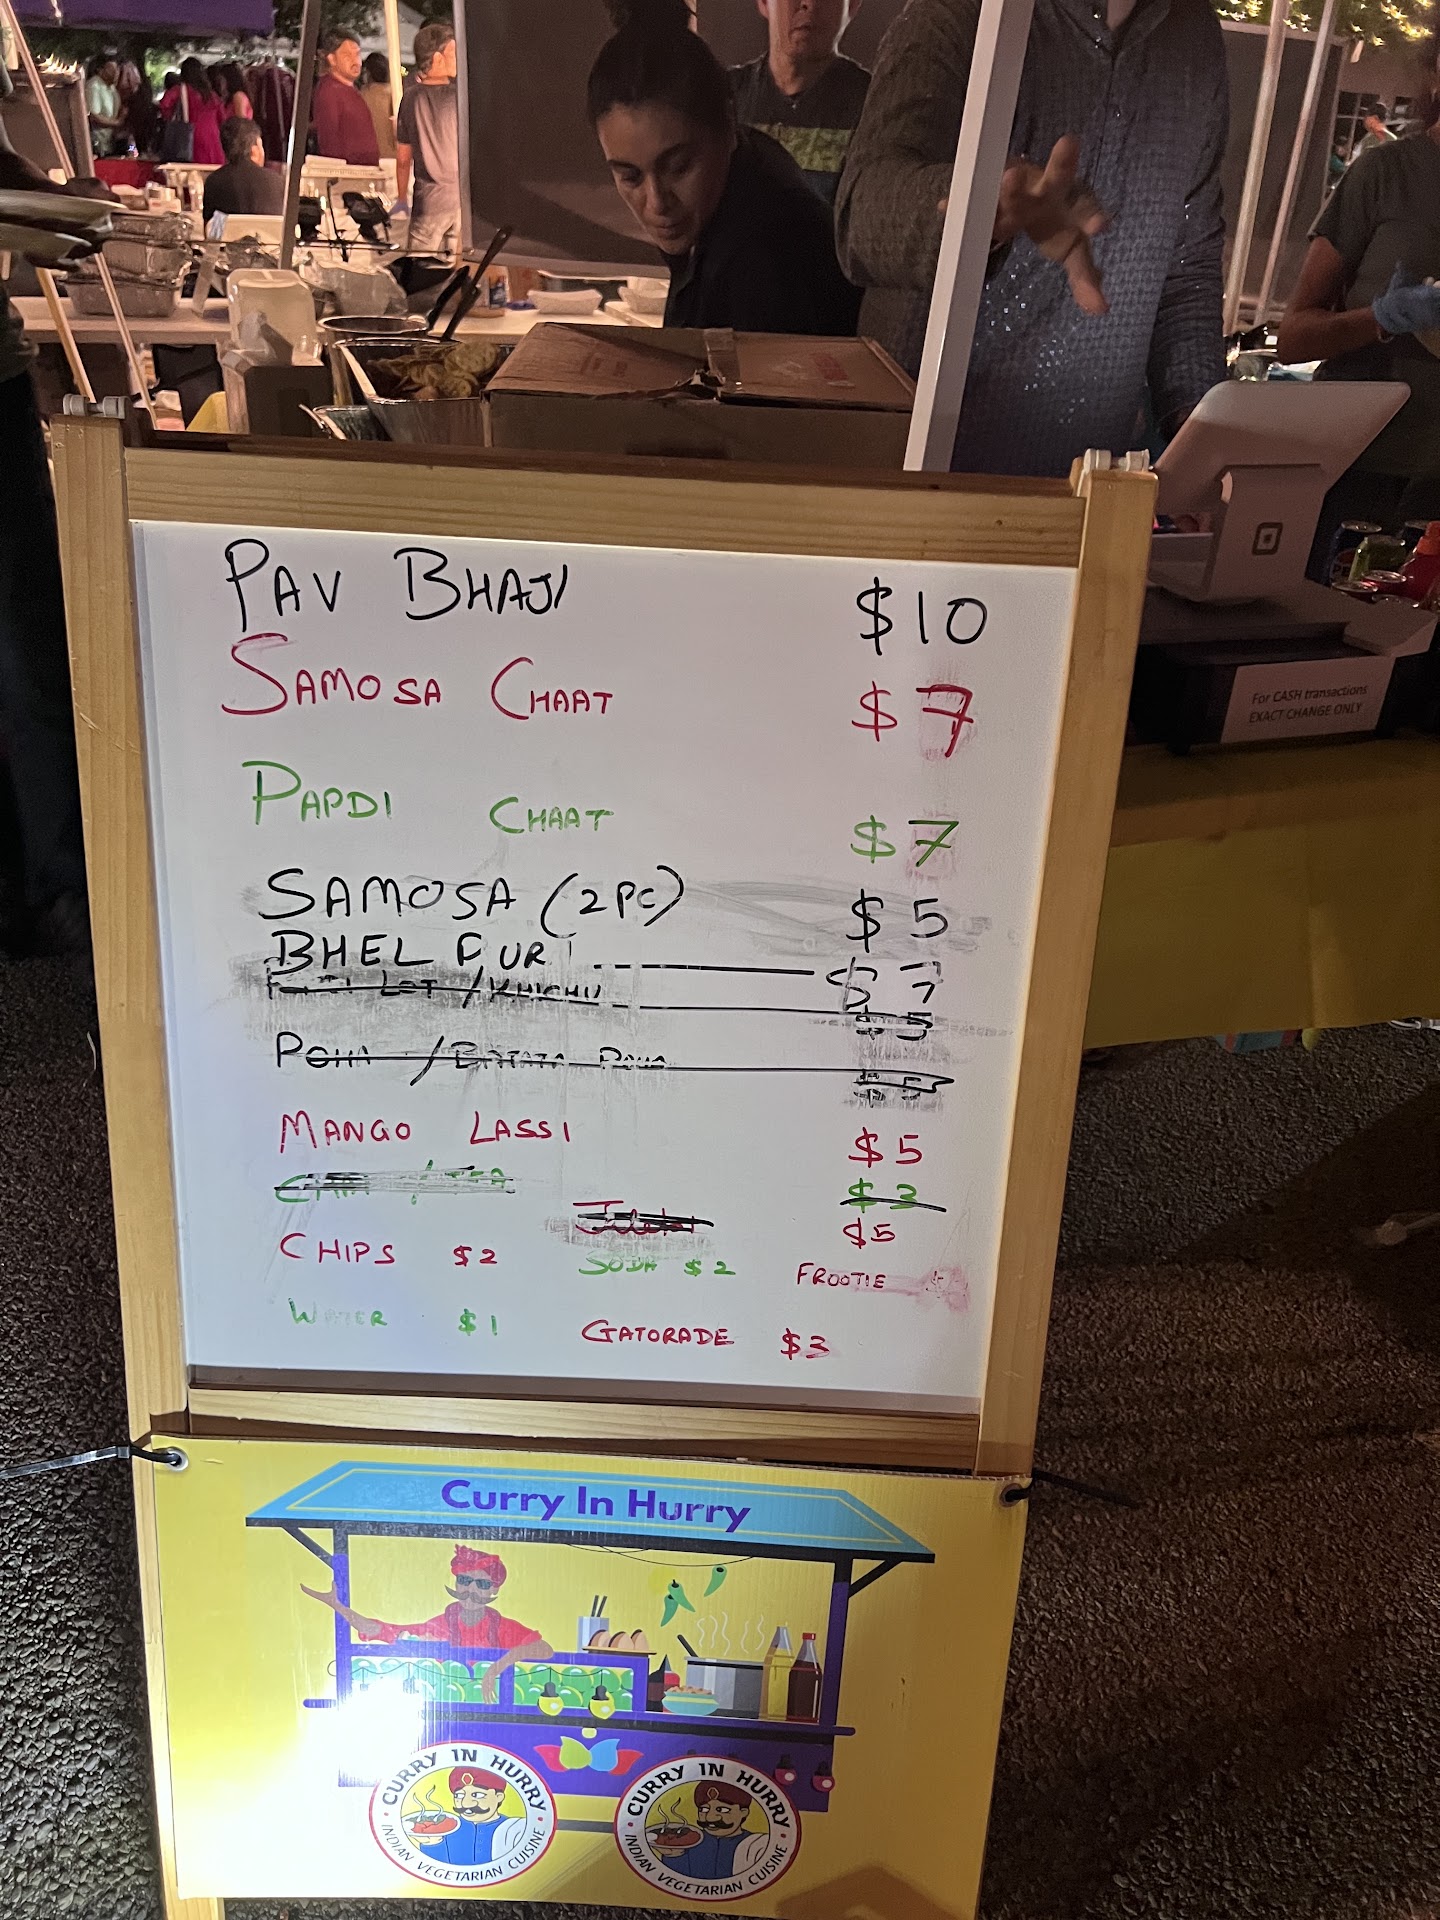 For CASH transactions
EXACT CHANGE ONLY
PAV BHAJI $10
SAMOSA CHAAT $7
PAPDI CHAAT $7
SAMOSA (2PC) $5
BHEL PURI $7
LOT / KHICHU $5
POHA / BATATA POHA $5
MANGO LASSI $5
$3
$5
CHIPS $2 SODA $2 FROOTIE
WATER $1 GATORADE $3
Curry In Hurry
CURRY IN HURRY
INDIAN VEGETARIAN CUISINE
CURRY IN HURRY
INDIAN VEGETARIAN CUISINE